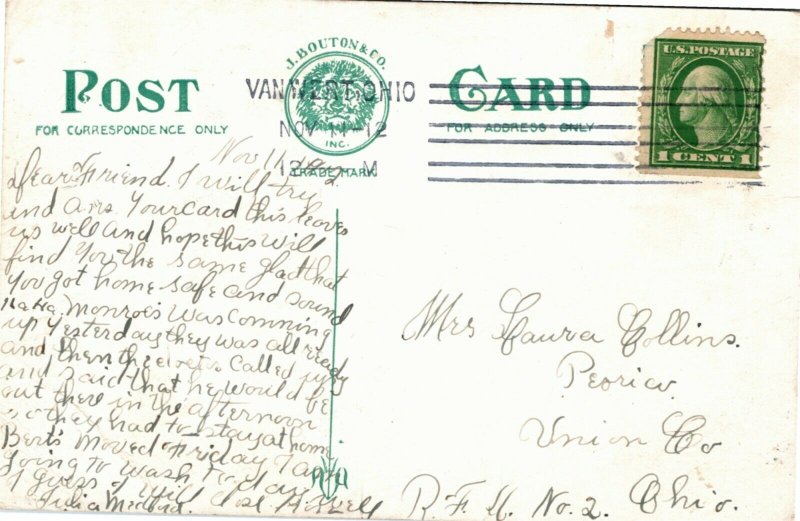 POST CARD
J. BOUTON & CO.
INC.
TRADE MARK
FOR CORRESPONDENCE ONLY
FOR ADDRESS ONLY
VAN WERT, OHIO
NOV 11-12
M
U.S. POSTAGE
1 CENT 1
Nov 11, 1912
Dear Friend. I will try
and Ans Your card this leaves
us well and hope this will
find You the same glad that
You got home safe and sound
Monroe's was comming
up Yesterday they was all ready
and then the called
and said that he would be
out there in the afternoon
so they had to stay at home
Bert's moved Friday I am
going to wash to day
I guess I will close
Julia
Mrs Laura Collins.
Peoria
Union Co
R. F. D. No. 2. Ohio.